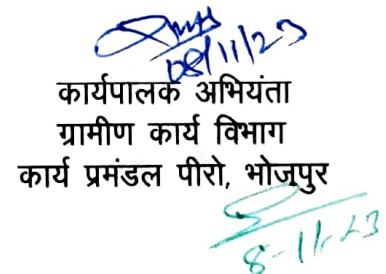 08/11/23
कार्यपालक अभियंता
ग्रामीण कार्य विभाग
कार्य प्रमंडल पीरो, भोजपुर
8-11-23